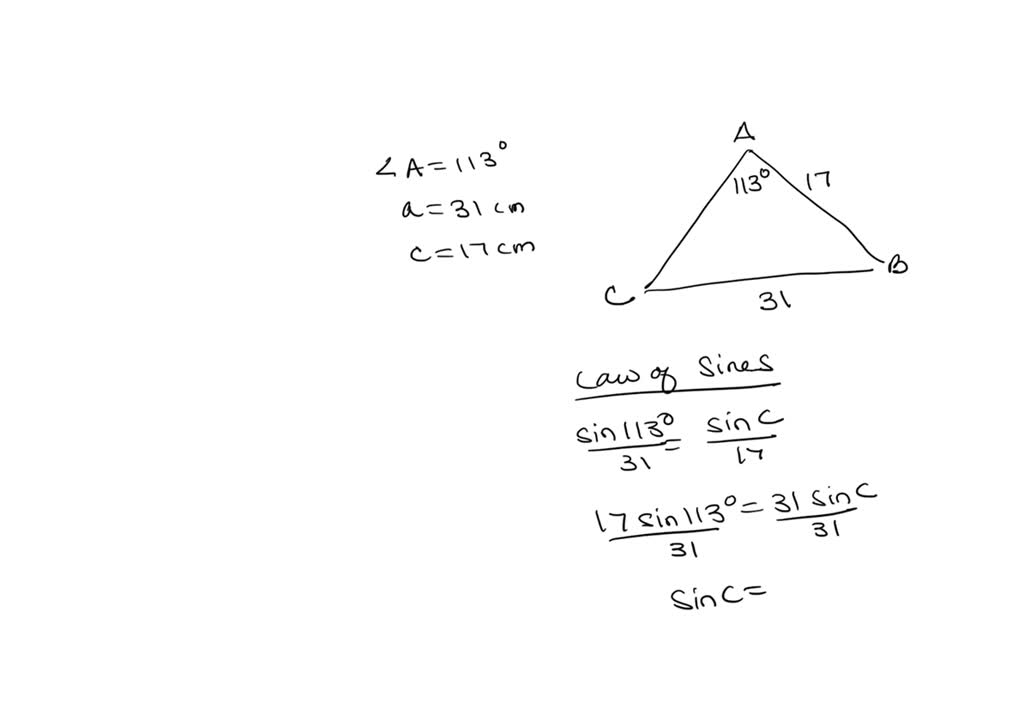 ∠A = 113°
a = 31 cm
c = 17 cm
A
113°
17
C
B
31
Law of Sines
sin 113° / 31 = sin C / 17
17 sin 113° / 31 = 31 sin C / 31
sin C =